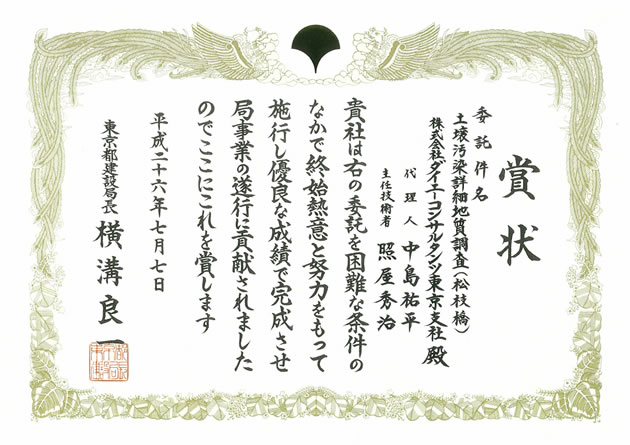 賞状
委託件名
土壌汚染詳細地質調査(松枝橋)
株式会社ダイエーコンサルタンツ東京支社 殿
代理人 中島祐平
主任技術者 照屋秀治
貴社は右の委託を困難な条件の
なかで終始熱意と努力をもって
施行し優良な成績で完成させ
局事業の遂行に貢献されました
のでここにこれを賞します
平成二十六年七月七日
東京都建設局長 横溝良一